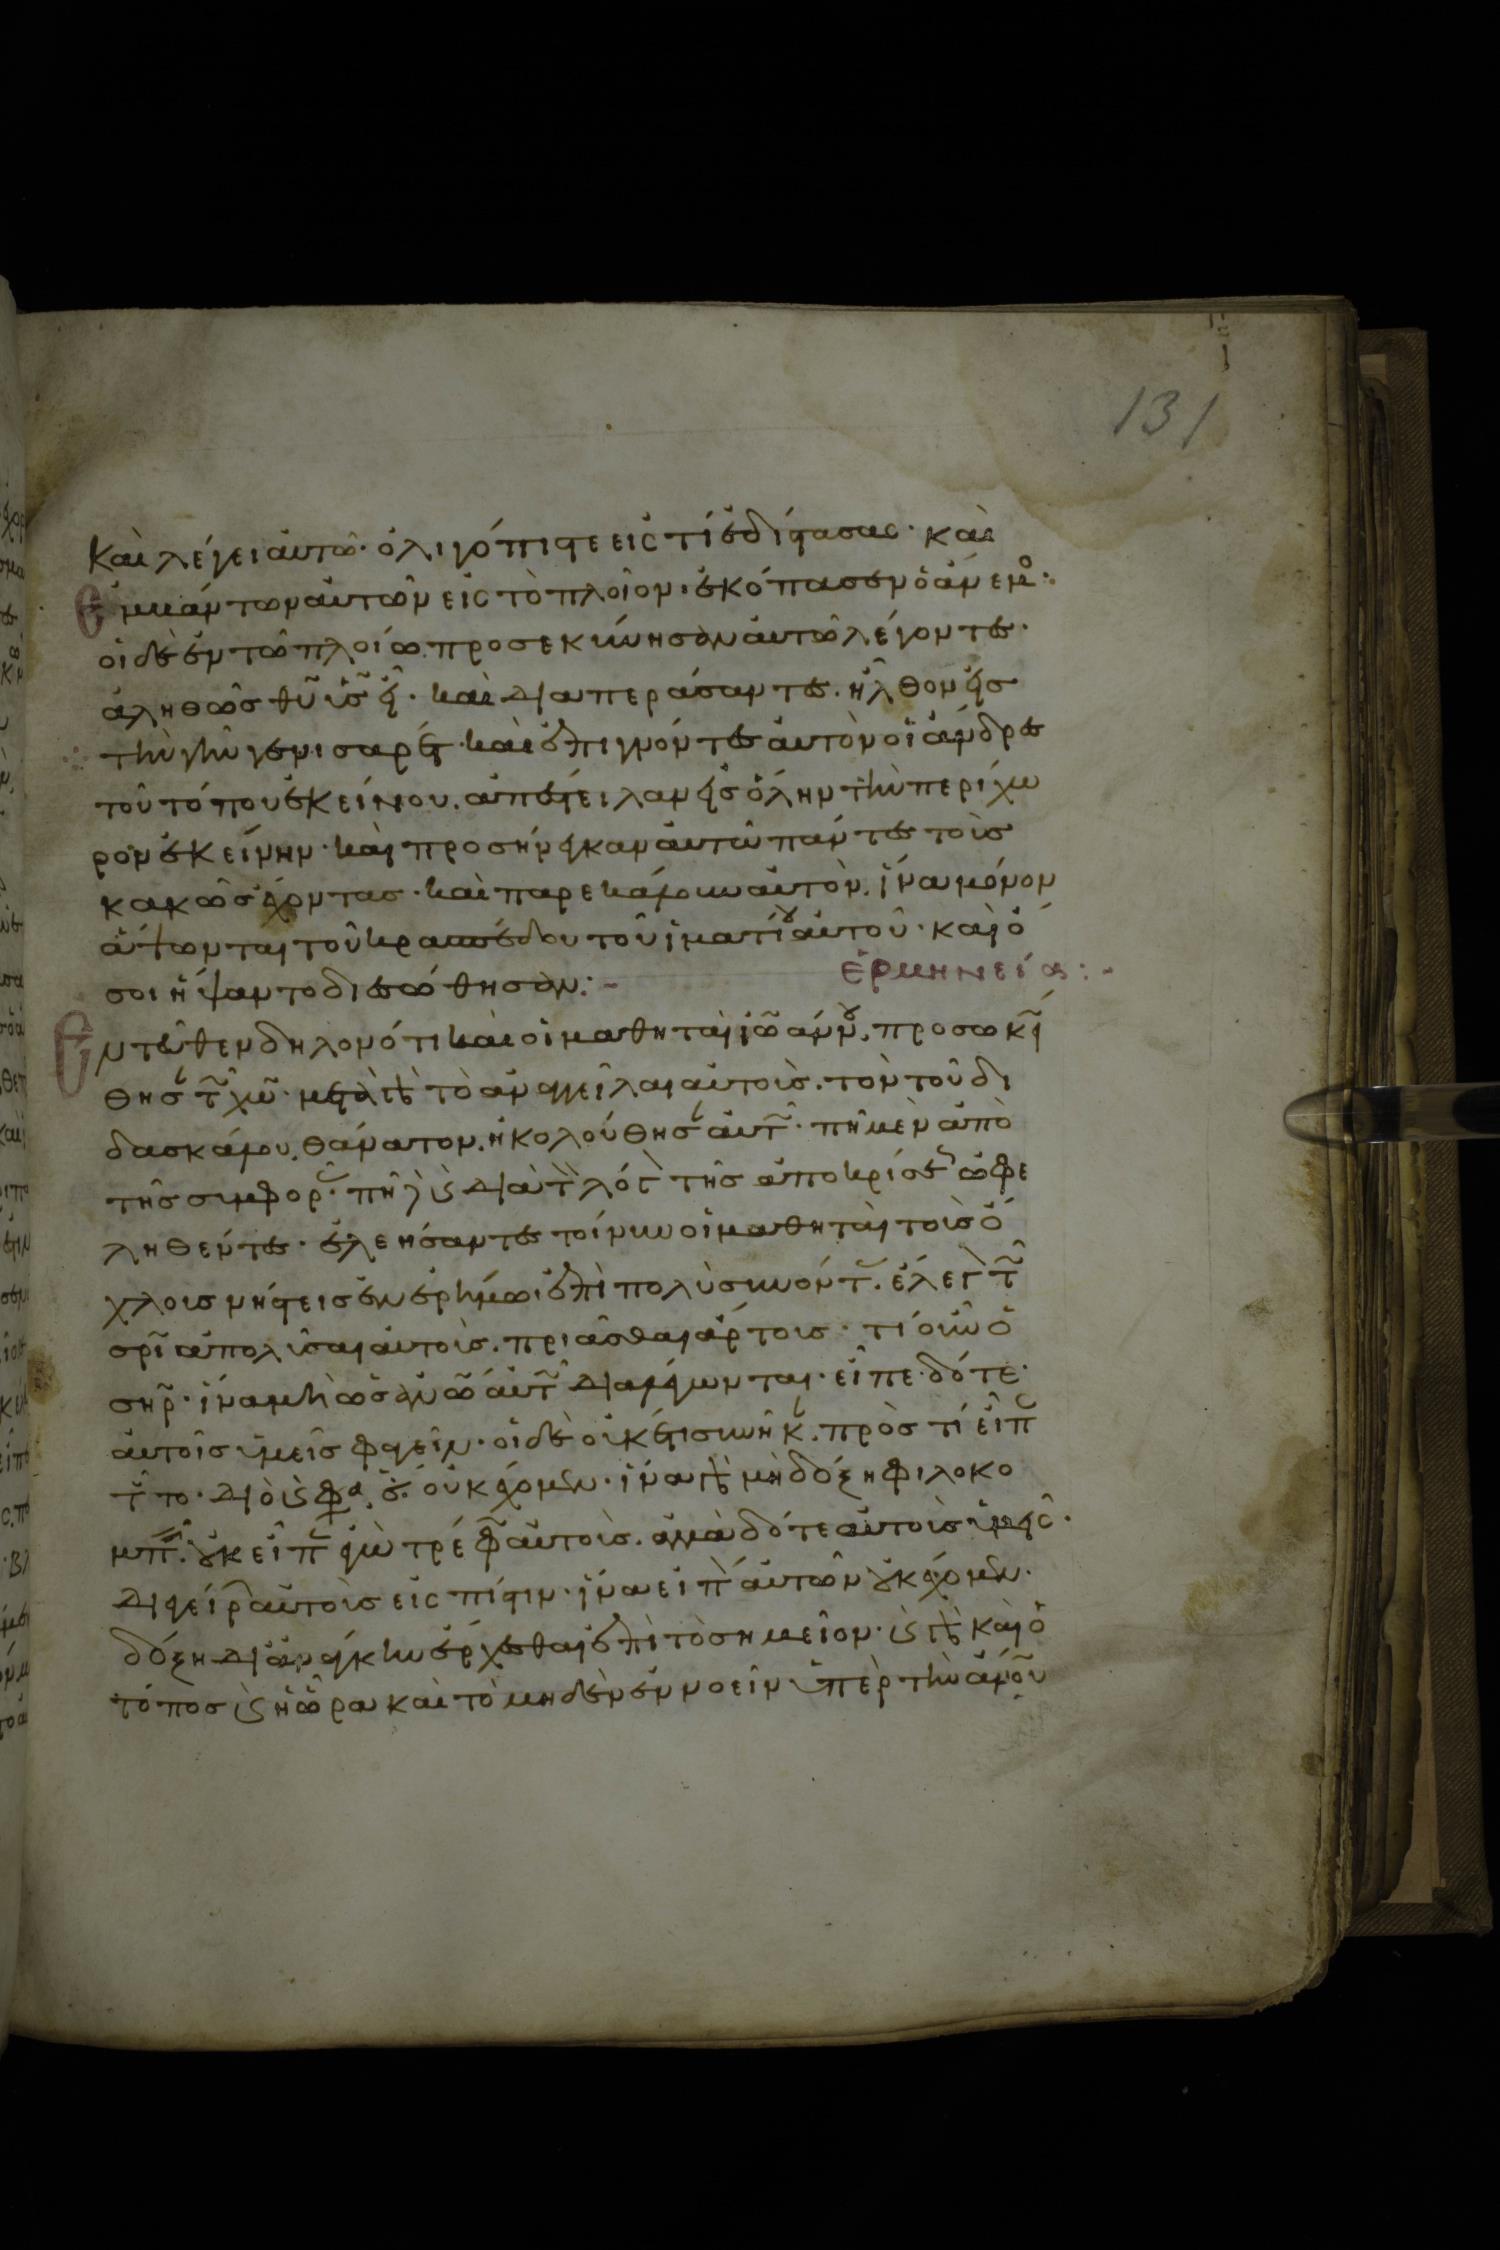 131
Καὶ λέγει αὐτῶ· ὀλιγόπιστε εἰς τί ἐδίστασας· καὶ
ἐμβάντων αὐτῶν εἰς τὸ πλοῖον· ἐκόπασεν ὁ ἄνεμο:
οἱ δὲ ἐν τῶ πλοίω προσεκύνησαν αὐτῶ λέγοντες·
ἀληθῶς θῦ υἱς εἶ· καὶ διαπεράσαντες· ἦλθον εἰς
τὴν γῆν γεννισαρέτ· καὶ ἐπιγνόντες αὐτὸν οἱ ἄνδρες
τοῦ τόπου ἐκείνου. ἀπέστειλαν εἰς ὅλην τὴν περίχω
ρον ἐκείνην· καὶ προσήνεγκαν αὐτῶ πάντες τοὺς
κακῶς ἔχοντας· καὶ παρεκάλουν αὐτὸν. ἵνα μόνον
ἅψωνται τοῦ κρασπέδου τοῦ ἱματίου αὐτοῦ· καὶ ὅ
σοι ἥψαντο διεσώθησαν:-
ἑρμηνεία:-
Εντεῦθεν δηλονότι καὶ οἱ μαθηταὶ ἰῶάννου. προσωκεί
θησ τ χω· μετὰ τὸ ἀναγγεῖλαι αὐτοῖς. τὸν τοῦ δι
δασκάλου θάνατον. ἠκολούθησ αὐτ· πῆ μὲν ἀπὸ
τῆς συμφορ· πῆ δ διὰ τ λόγ τῆς ἀποκρίσε ὠφε
ληθέντες· ἐλεήσαντες τοίνυν οἱ μαθηταὶ τοὺς ὄ
χλους νήστεις ἐν ἐρήμω ἐπὶ πολὺ συνόντ. ἔλεγ τ
σρι ἀπολῦσαι αὐτοὺς. πριᾶσθαι ἄρτους· τί οὖν ὁ
σηρ· ἵνα μὴ ὡς ἀν αὐτ διαλέγωνται· εἶπε δότε
αὐτοῖς ὑμεῖς φαγεῖν· οἱ δὲ οὐκέτι συνῆκ. πρὸς τί εἶπ
τ το· διὸ φα οὐκ ἔχομεν· ἵνα μὴ δόξη φιλοκο
μπ. οὐκ εἶπ ἐγὼ τρέφ αὐτοὺς. ἀλλὰ δότε αὐτοῖς ὑμεῖς·
διεγείρ αὐτοὺς εἰς πίστιν· ἵνα εἰπ αὐτῶν οὐκ ἔχομεν.
δόξη δι' ἀνάγκην ἔρχεσθαι ἐπὶ τὸ σημεῖον· καὶ ὁ
τόπος ἡ ὥρα καὶ τὸ μηδὲν ἐννοεῖν ὑπὲρ τὴν